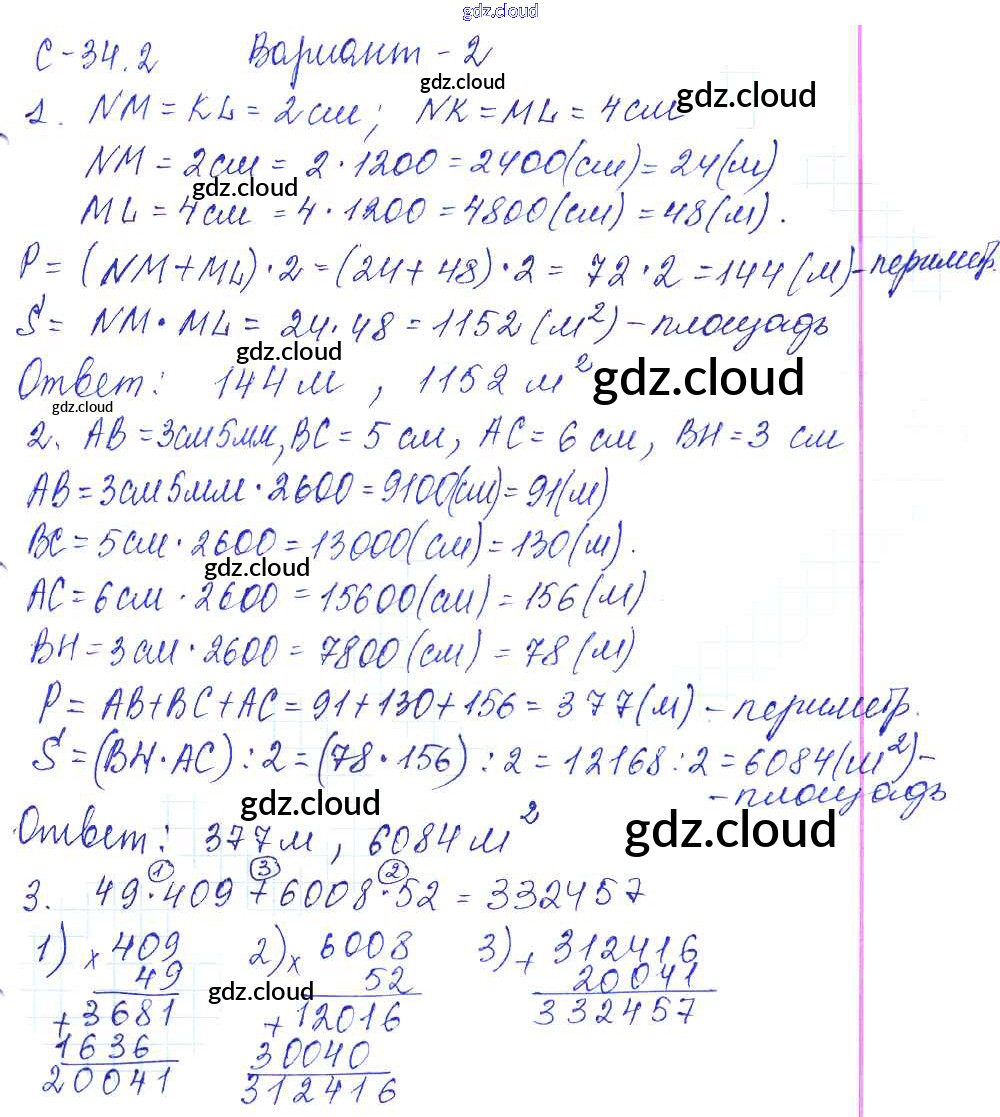 gdz.cloud
С-34.2 Вариант - 2
gdz.cloud gdz.cloud
1. NM = KL = 2см; NK = ML = 4см
NM = 2см = 2·1200 = 2400(см) = 24(м)
gdz.cloud
ML = 4см = 4·1200 = 4800(см) = 48(м).
P = (NM+ML)·2 = (24+48)·2 = 72·2 = 144(м) - периметр.
S = NM·ML = 24·48 = 1152(м²) - площадь
gdz.cloud
Ответ: 144м, 1152м²
gdz.cloud
gdz.cloud
2. AB = 3см5мм, BC = 5 см, AC = 6 см, BH = 3 см
AB = 3см5мм·2600 = 9100(см) = 91(м)
BC = 5см·2600 = 13000(см) = 130(м).
gdz.cloud
AC = 6см·2600 = 15600(см) = 156(м)
BH = 3см·2600 = 7800(см) = 78(м)
P = AB+BC+AC = 91+130+156 = 377(м) - периметр.
S = (BH·AC):2 = (78·156):2 = 12168:2 = 6084(м²) -
- площадь
gdz.cloud
Ответ: 377м, 6084м²
gdz.cloud
1 3 2
3. 49·409+6008·52 = 332457
1) × 409 2) × 6008 3) + 312416
49 52 20041
gdz.cloud
+3681 +12016 332457
1636 30040
20041 312416